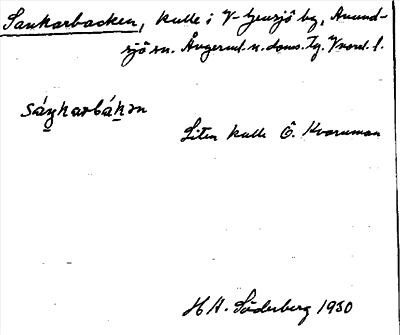 Sankarbacken, kulle i V-Gensjö by, Anund-
sjö sn. Ångerml. n. doms. Tg. Vnord. l.
sáŋkarbákɜn
Liten kulle Ö. Kvarnman
H A. Söderberg 1930